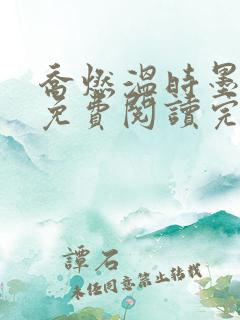 喬燃溫時墨
免費閱讀完
譚石
未任同意禁止转载